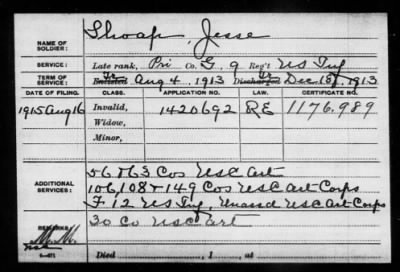 NAME OF SOLDIER: Shoap, Jesse
SERVICE: Late rank, Pri Co. G, 9 Reg't US Inf
TERM OF SERVICE: Enlisted Fr Aug 4, 1913 Discharged To Dec 15, 1913
DATE OF FILING. CLASS. APPLICATION NO. LAW. CERTIFICATE NO.
1915 Aug 16 Invalid, 1420692 RE 1176.989
Widow,
Minor,
ADDITIONAL SERVICES: 56 & 63 Cos USC Art
106, 108 & 149 Cos USC Art Corps
F 12 US Inf, Unassd USC Art Corps
REMARKS: 30 Co USC Art
Died , 1 , at